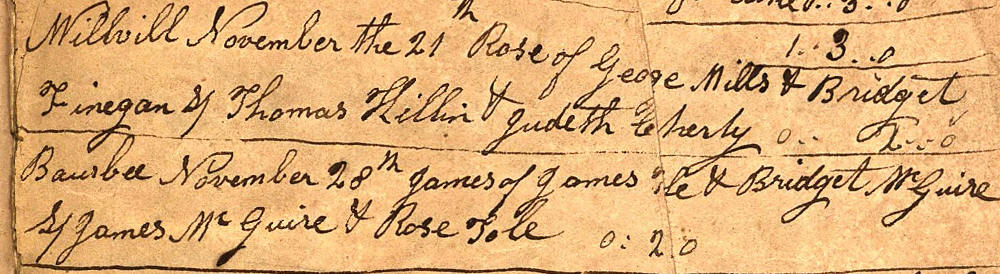 0..3..0
Millvill November the 21th Rose of Geoge Mills & Bridget
1..3..0
Finegan Sp Thomas Killin & Judeth 0..2..0
Bausbee November 28th James of James & Bridget Mc Guire
Sp James Mc Guire & Rose Tole 0:2 0